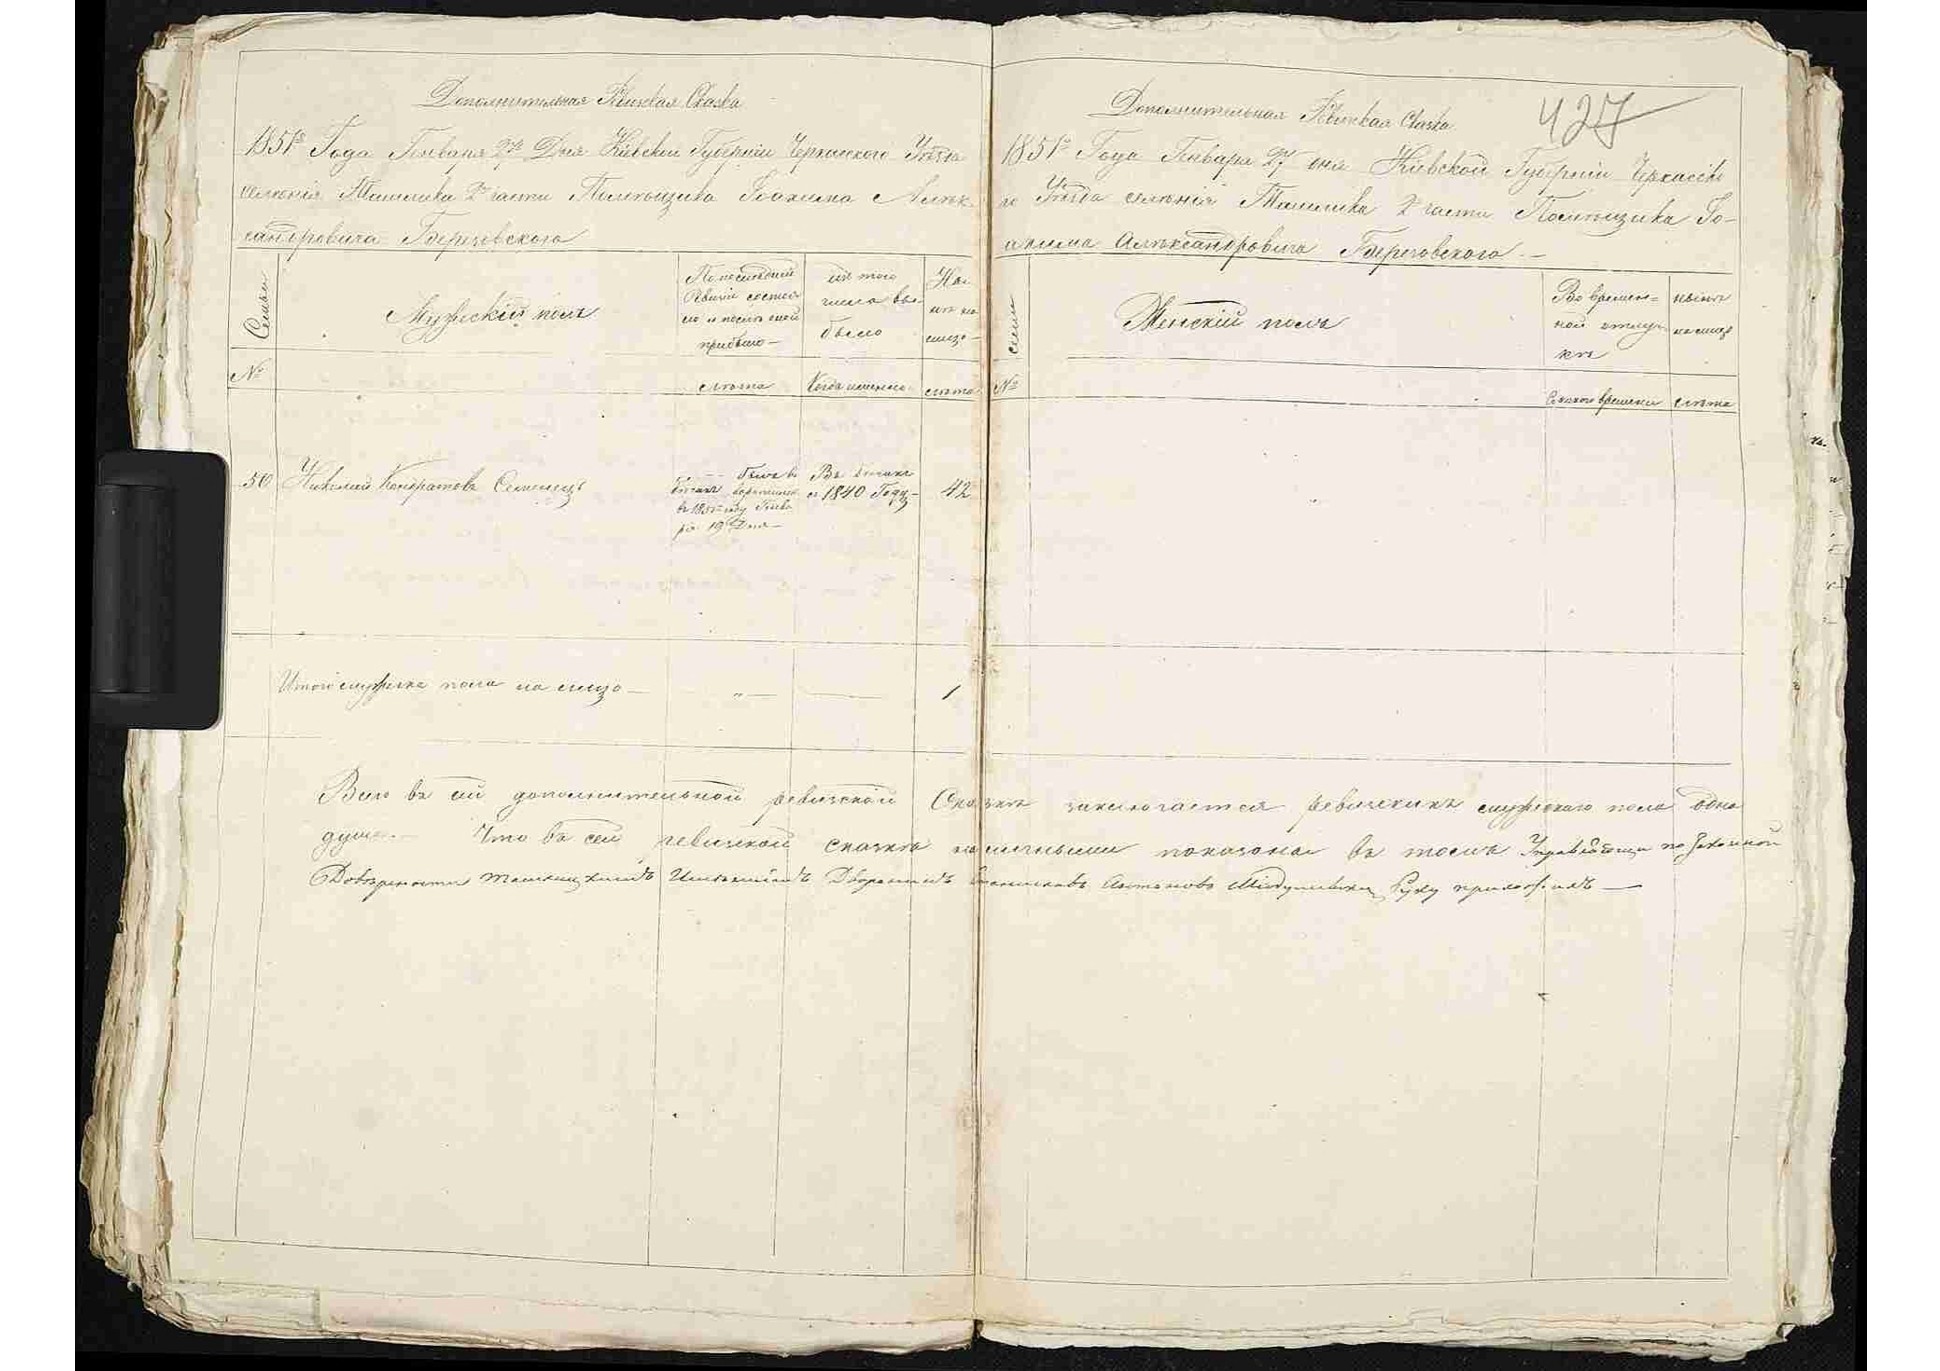 Дополнительная Ревизкая Сказка
1851го Года Генваря 27го Дня Кіевской Губерніи Черкасского Уѣзда
селенія Ташлика 2й части Помещика Іоахима Алек
сандровича Березовского
Семьи
Мужескій полъ
По последней
Ревизіи состоя
ло и послѣ оной
прибыло —
изъ того
числа вы
было
На
лицо —
№
лѣта
Когда именно
лѣта
50 Николай Кондратовъ Семенецъ
былъ въ
бегахъ
в 1851 году Генва
ря 19 Дня —
Въ бегахъ
съ 1840 Году —
42
Итого мужеска пола на лицо —
" —
1
Дополнительная Ревизкая Сказка
427
1851го Года Генваря 27 дня Кіевской Губерніи Черкаско
го Уѣзда селенія Ташлика 2й части Помещика Іо-
ахима Александровича Березовского —
семьи
Женскій полъ
Во времен=
ной отлуч
кѣ
нынѣ
на лицо
№
С какого времени
лѣта
Всего въ сей дополнительной ревизской Сказкѣ заключается ревизскихъ мужеского пола одна
душа. — Что въ сей ревизской сказкѣ показона въ томъ Управляющи по Законной
Довѣренности Имѣніемъ Дворянинъ Антоновъ Руку приложилъ —